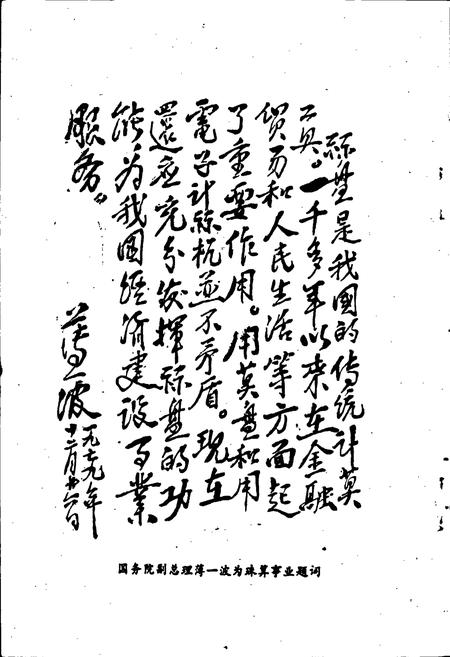 祘盘是我國的传统计算
工具。一千多年以来在金融
贸易和人民生活等方面起
了重要作用。用算盘和用
電子计祘机並不矛盾。现在
還应充分发揮祘盘的功
能，为我國经济建设事業
服务。
薄一波
一九七九年
十二月廿六日
国务院副总理薄一波为珠算事业题词